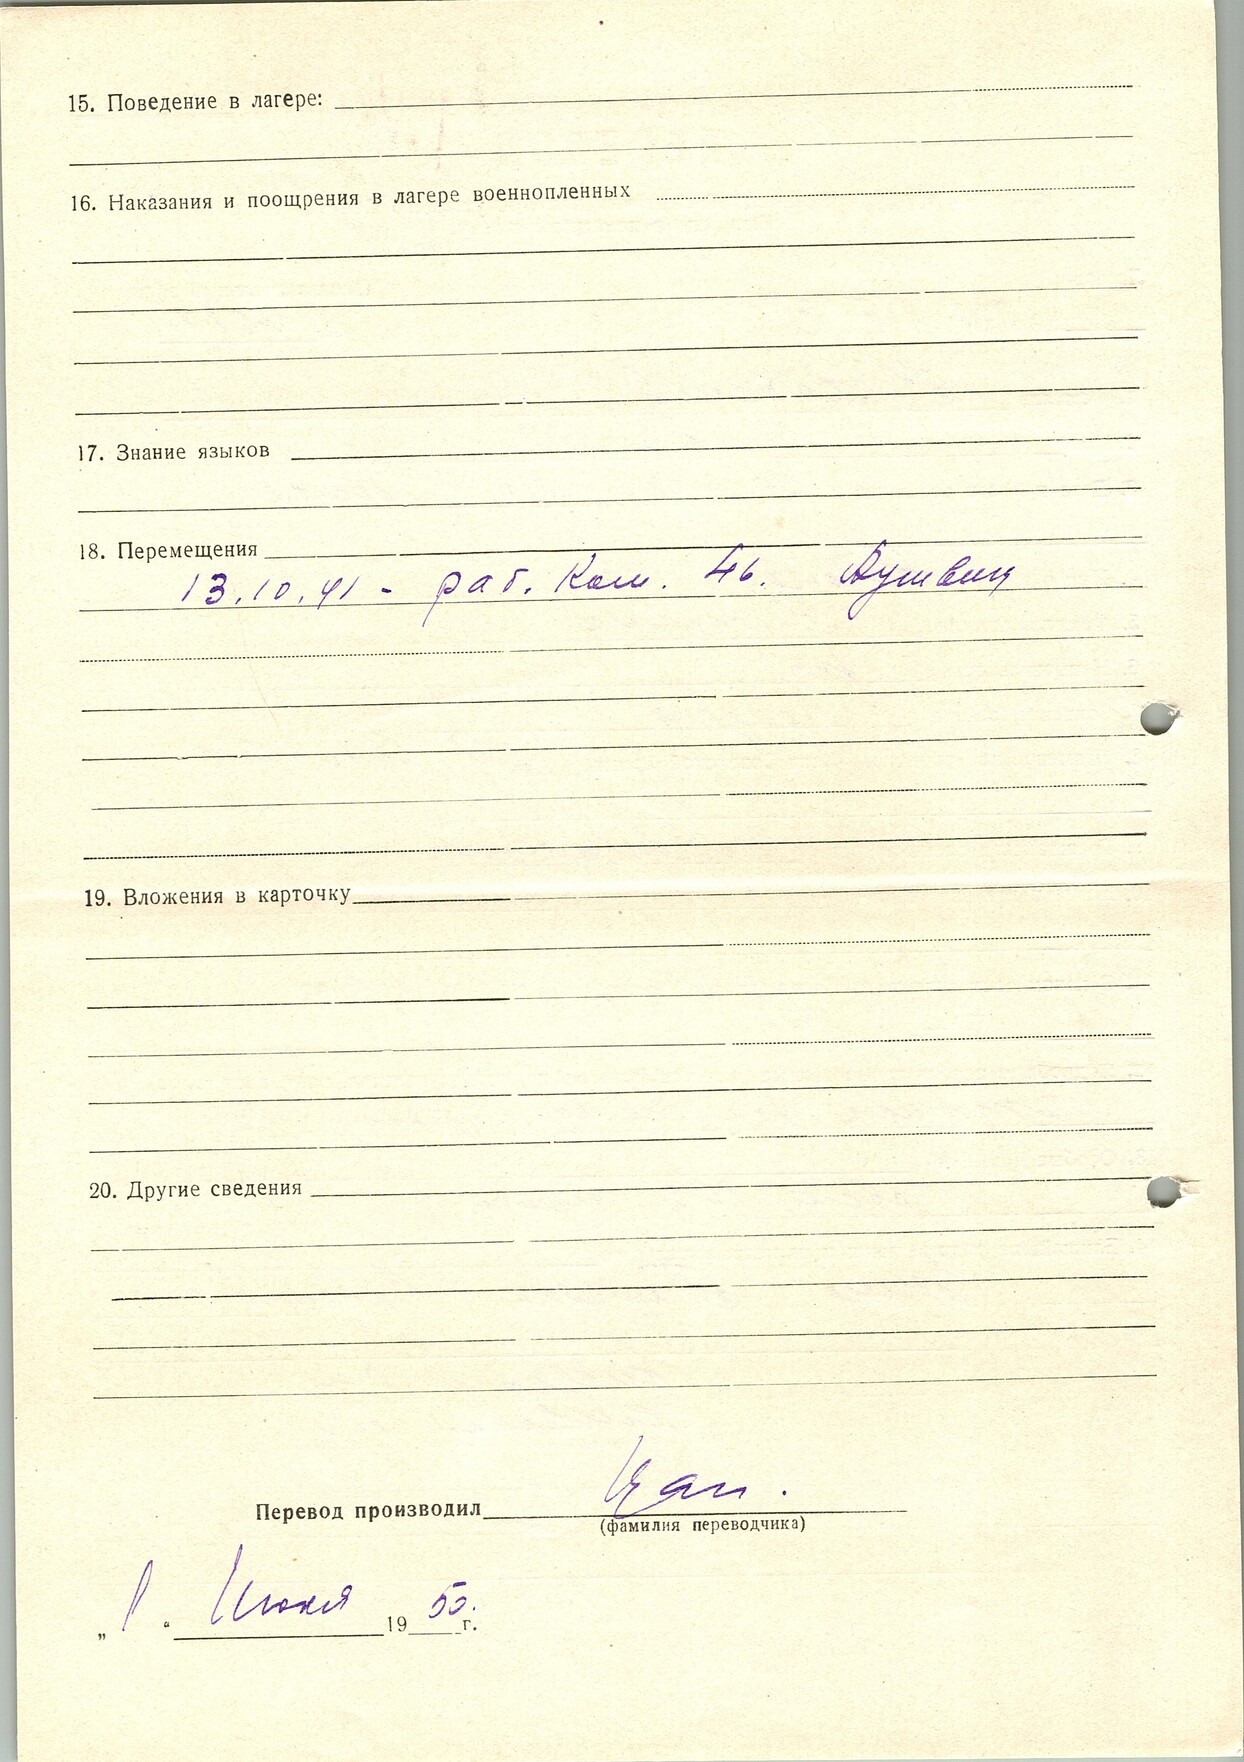 15. Поведение в лагере:
16. Наказания и поощрения в лагере военнопленных
17. Знание языков
18. Перемещения
13.10.41 - раб. Ком. 46. Аушвиц
19. Вложения в карточку
20. Другие сведения
Перевод производил
(фамилия переводчика)
„ " Июля 1950. г.